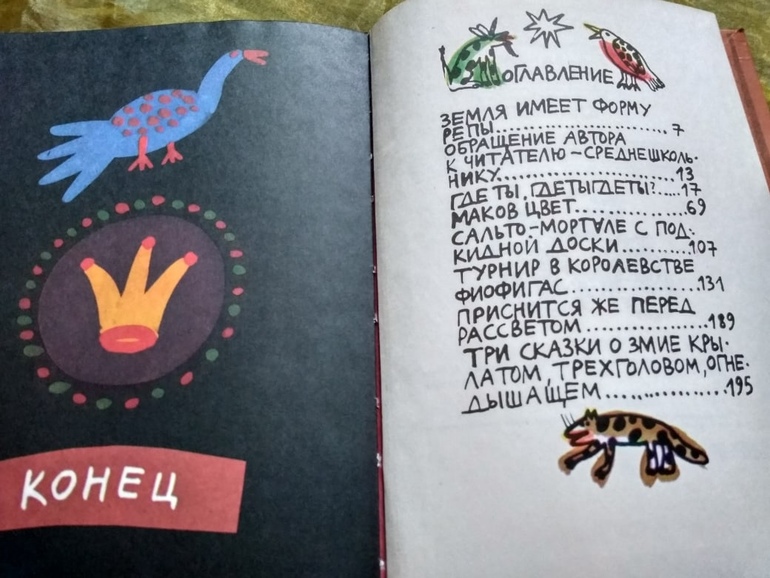 КОНЕЦ
ОГЛАВЛЕНИЕ
ЗЕМЛЯ ИМЕЕТ ФОРМУ
РЕПЫ....................7
ОБРАЩЕНИЕ АВТОРА
К ЧИТАТЕЛЮ–СРЕДНЕШКОЛЬ-
НИКУ....................13
ГДЕ ТЫ, ГДЕТЫГДЕТЫ?....17
МАКОВ ЦВЕТ..............69
САЛЬТО-МОРТАЛЕ С ПОД-
КИДНОЙ ДОСКИ..........107
ТУРНИР В КОРОЛЕВСТВЕ
ФИОФИГАС...............131
ПРИСНИТСЯ ЖЕ ПЕРЕД
РАССВЕТОМ..............189
ТРИ СКАЗКИ О ЗМИЕ КРЫ-
ЛАТОМ, ТРЕХГОЛОВОМ, ОГНЕ-
ДЫШАЩЕМ...............195